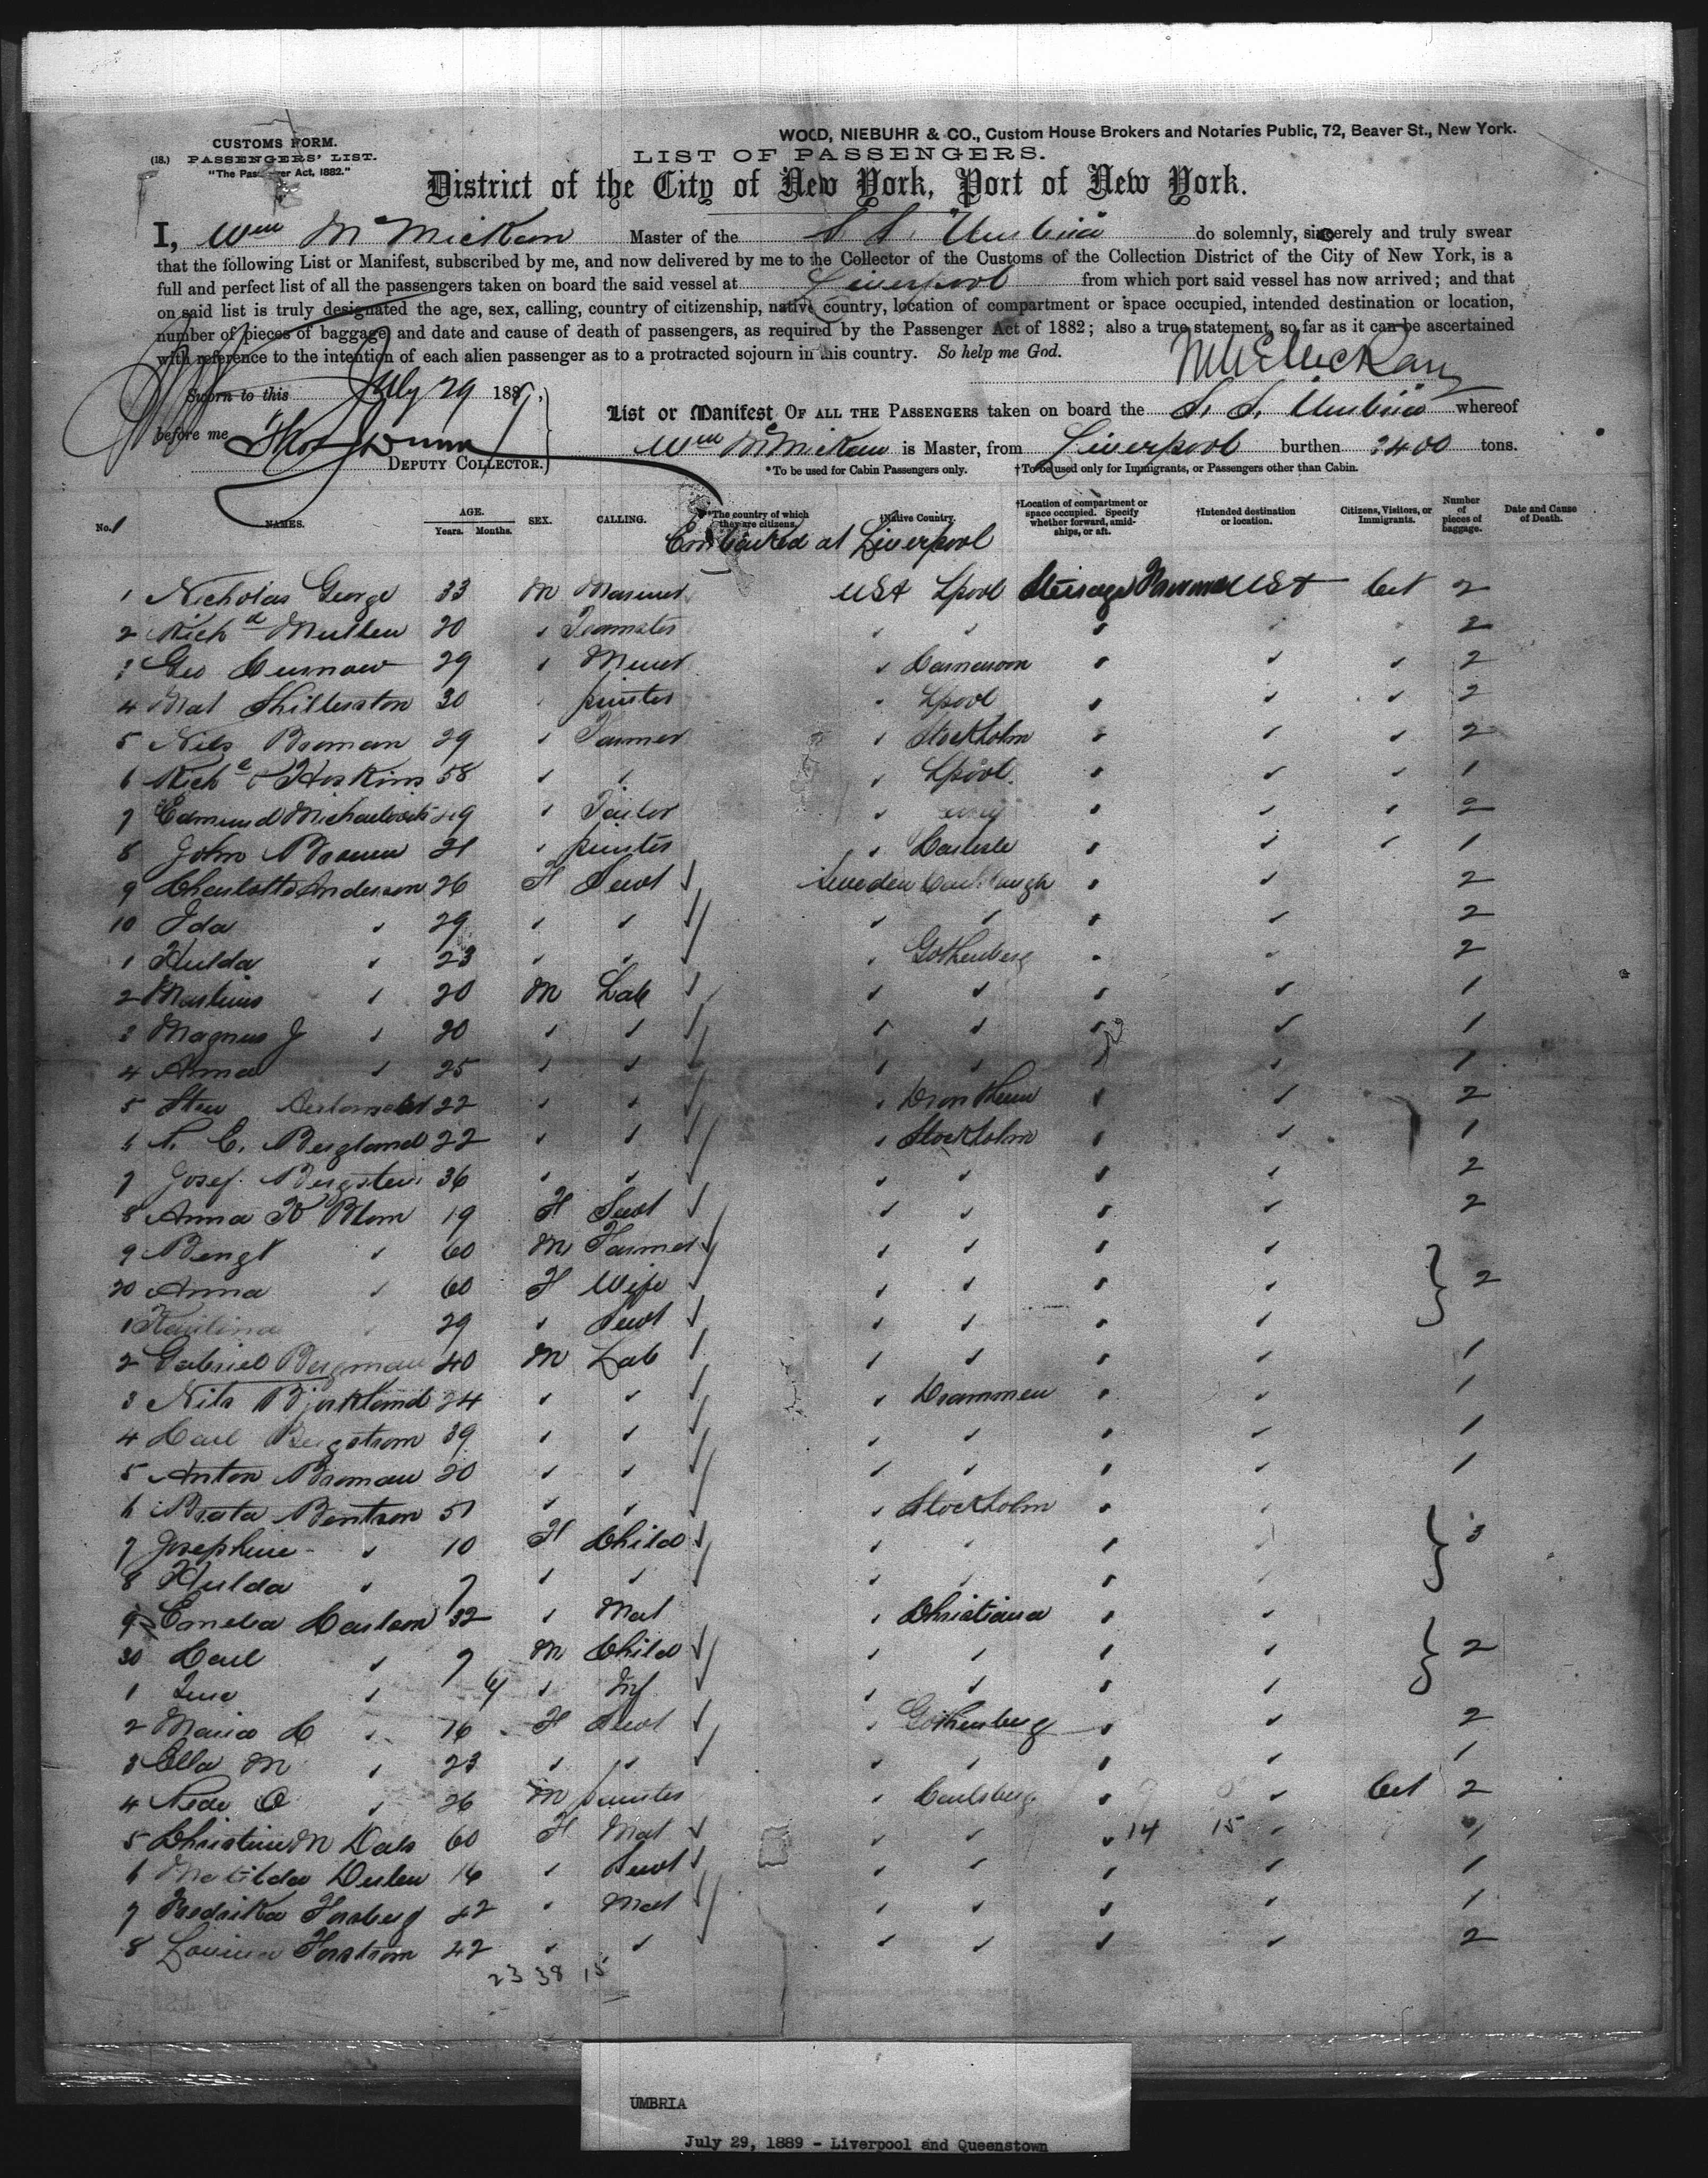 CUSTOMS FORM.
(18.) PASSENGERS' LIST.
"The Passenger Act, 1882."
WOOD, NIEBUHR & CO., Custom House Brokers and Notaries Public, 72, Beaver St., New York.
LIST OF PASSENGERS.
District of the City of New York, Port of New York.
I, Wm McMickan Master of the S. S. Umbria do solemnly, sincerely and truly swear
that the following List or Manifest, subscribed by me, and now delivered by me to the Collector of the Customs of the Collection District of the City of New York, is a
full and perfect list of all the passengers taken on board the said vessel at Liverpool from which port said vessel has now arrived; and that
on said list is truly designated the age, sex, calling, country of citizenship, native country, location of compartment or space occupied, intended destination or location,
number of pieces of baggage, and date and cause of death of passengers, as required by the Passenger Act of 1882; also a true statement, so far as it can be ascertained
with reference to the intention of each alien passenger as to a protracted sojourn in this country. So help me God.
Sworn to this July 29 188
before me
DEPUTY COLLECTOR.
List or Manifest OF ALL THE PASSENGERS taken on board the S. S. Umbria whereof
Wm McMickan is Master, from Liverpool burthen 3400 tons.
*To be used for Cabin Passengers only. †To be used only for Immigrants, or Passengers other than Cabin.
No. NAMES. AGE. Years. Months. SEX. CALLING. *The country of which they are citizens. †Native Country. †Location of compartment or space occupied. Specify whether forward, amidships, or aft. †Intended destination or location. Citizens, Visitors, or Immigrants. Number of pieces of baggage. Date and Cause of Death.
Embarked at Liverpool
1 Nicholas George 33 M USA Lpool Steerage USA Cit 2
2 Richd Mullen 20 ✓ Teamster ✓ ✓ ✓ 2
3 Geo Curnow 29 ✓ Miner ✓ Carnarvon ✓ ✓ ✓ 2
4 Mat 30 printer Lpool ✓ ✓ ✓ 2
5 Nils Broman 29 ✓ Farmer ✓ Stockholm ✓ ✓ ✓ 2
6 Hoskins 58 ✓ ✓ ✓ Lpool ✓ ✓ ✓ 1
7 Edmund ✓ Tailor ✓ ✓ ✓ ✓ 2
8 John Brown 21 ✓ printer ✓ Carlisle ✓ ✓ ✓ 1
9 Charlotte Anderson 26 F Servt ✓ Sweden ✓ ✓ 2
10 Ida ✓ 29 ✓ ✓ ✓ ✓ ✓ ✓ ✓ 2
1 Hulda ✓ 23 ✓ ✓ ✓ ✓ Gothenberg 2
2 Martinus ✓ 20 M Lab ✓ ✓ ✓ ✓ ✓ 1
3 Magnus J ✓ 20 ✓ ✓ ✓ ✓ ✓ ✓ ✓ 1
4 Anna ✓ 25 ✓ ✓ ✓ ✓ ✓ ✓ ✓ 1
5 22 ✓ ✓ ✓ ✓ Drontheim ✓ ✓ 2
6 Berglund 22 ✓ ✓ ✓ ✓ Stockholm ✓ ✓ 1
7 Josef Bergsten 36 ✓ ✓ ✓ ✓ ✓ ✓ ✓ 2
8 Anna K Blom 19 F Servt ✓ ✓ ✓ ✓ ✓ 2
9 Bengt ✓ 60 M Farmer ✓ ✓ ✓ ✓ ✓
20 Anna ✓ 60 F Wife ✓ ✓ ✓ ✓ ✓ 2
1 29 ✓ Servt ✓ ✓ ✓ ✓ ✓
2 Gabriel Bergman 40 M Lab ✓ ✓ ✓ ✓ ✓ 1
3 Nils Bjorkland 24 ✓ ✓ ✓ ✓ Drammen ✓ ✓ 1
4 Carl Bergstrom 39 ✓ ✓ ✓ ✓ ✓ ✓ ✓ 1
5 Anton Broman 20 ✓ ✓ ✓ ✓ ✓ ✓ ✓ 1
6 Bentson 51 ✓ ✓ ✓ ✓ Stockholm ✓
7 Josephine ✓ 10 F Child ✓ ✓ ✓ ✓ 3
8 Hulda ✓ 7 ✓ ✓ ✓ ✓ ✓ ✓
9 Emelia Carlson 32 ✓ Mat ✓ Christiana ✓ ✓
30 Carl ✓ 7 M Child ✓ ✓ ✓ ✓ ✓ 2
1 ✓ ✓ Inf ✓ ✓ ✓ ✓ ✓
2 Maria C ✓ 16 F Servt ✓ ✓ Gothenberg ✓ ✓ 2
3 Ella M ✓ 23 ✓ ✓ ✓ ✓ ✓ ✓ ✓ 1
4 O ✓ 26 M printer ✓ Carlsberg ✓ ✓ Cit 2
5 Christine M 60 F Mat ✓ ✓ ✓ ✓ 14 15 ✓ 1
6 Matilda 16 ✓ Servt ✓ ✓ ✓ ✓ ✓ 1
7 Fredrika Forsberg 42 ✓ Mat ✓ ✓ ✓ ✓ ✓ 1
8 Lovisa Forstrom 42 ✓ ✓ ✓ ✓ ✓ ✓ ✓ 2
23 38 15
UMBRIA
July 29, 1889 - Liverpool and Queenstown